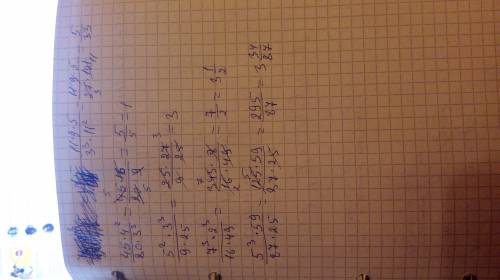 11·9·5 / 3³·11² = 11·9·5 / 27·121 = 5 / 33
45·4² / 20·3² = 45·16 / 20·9 = 5 / 5 = 1
5²·3³ / 9·25 = 25·27 / 9·25 = 3
7³·2³ / 16·49 = 343·8 / 16·49 = 7 / 2 = 3 1/2
5³·59 / 87·25 = 125·59 / 87·25 = 295 / 87 = 3 34/87